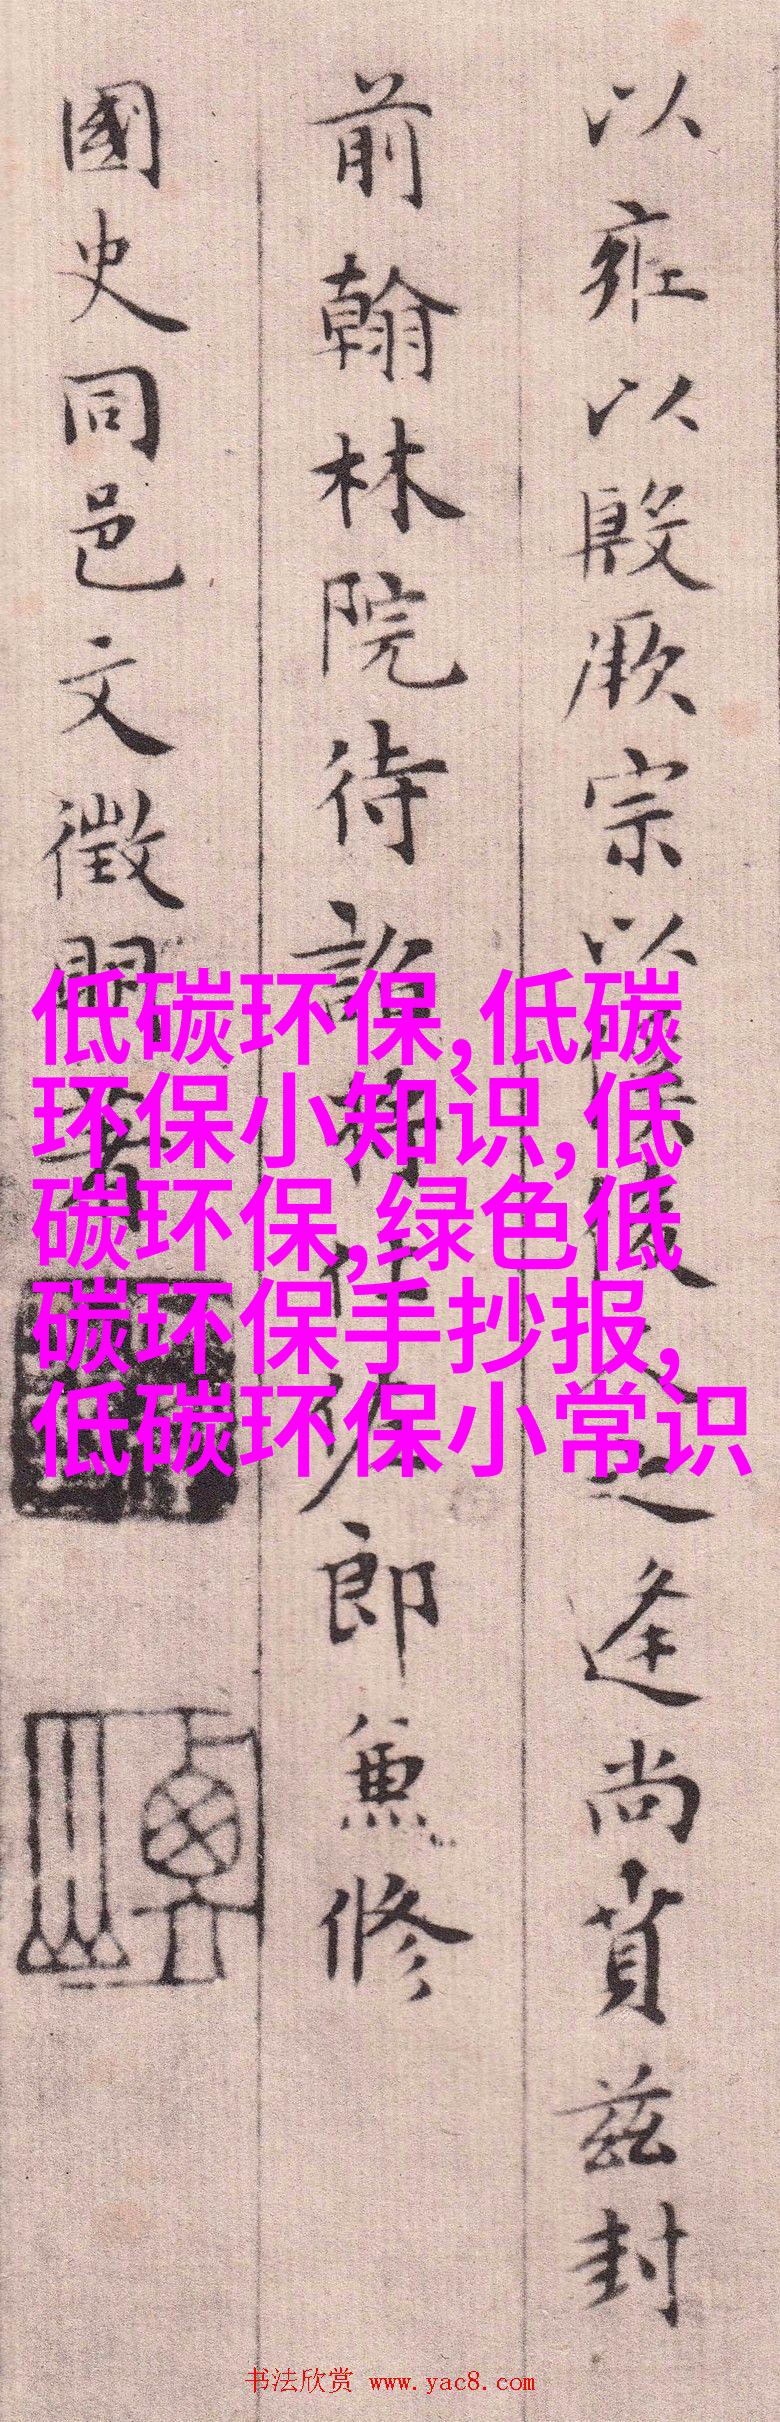 以雍以殷厥宗以
之逢尚賁茲封
前翰林院待詔将仕佐郎兼修
國史同邑文徵明書
低碳环保,低碳
环保小知识,低
碳环保,绿色低
碳环保手抄报,
低碳环保小常识
书法欣赏 www.yac8.com